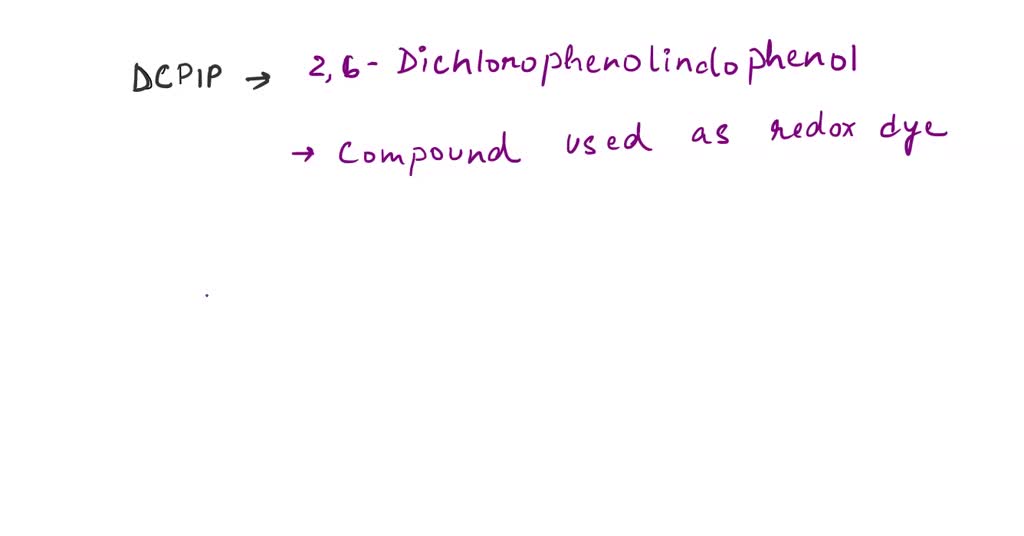 DCPIP → 2,6- Dichlorophenolindophenol
→ Compound used as redox dye